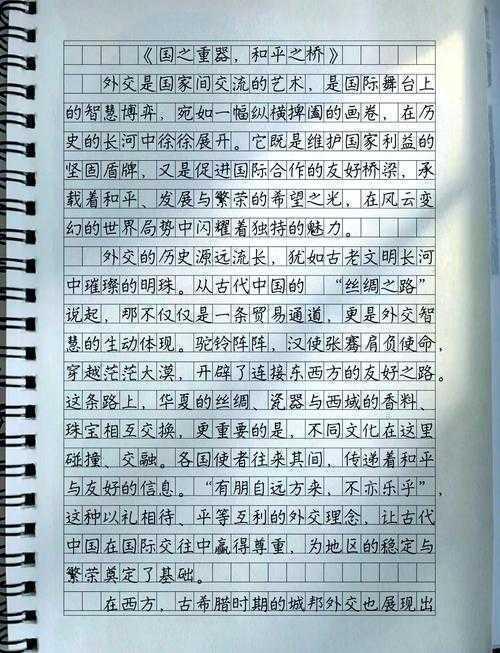 《国之重器，和平之桥》
外交是国家间交流的艺术，是国际舞台上
的智慧博弈，宛如一幅纵横捭阖的画卷，在历
史的长河中徐徐展开。它既是维护国家利益的
坚固盾牌，又是促进国际合作的友好桥梁，承
载着和平、发展与繁荣的希望之光，在风云变
幻的世界局势中闪耀着独特的魅力。
外交的历史源远流长，犹如古老文明长河
中璀璨的明珠。从古代中国的 “丝绸之路”
说起，那不仅仅是一条贸易通道，更是外交智
慧的生动体现。驼铃阵阵，汉使张骞肩负使命，
穿越茫茫大漠，开辟了连接东西方的友好之路。
这条路上，华夏的丝绸、瓷器与西域的香料、
珠宝相互交换，更重要的是，不同文化在这里
碰撞、交融。各国使者往来其间，传递着和平
与友好的信息。“有朋自远方来，不亦乐乎”，
这种以礼相待、平等互利的外交理念，让古代
中国在国际交往中赢得尊重，为地区的稳定与
繁荣奠定了基础。
在西方，古希腊时期的城邦外交也展现出